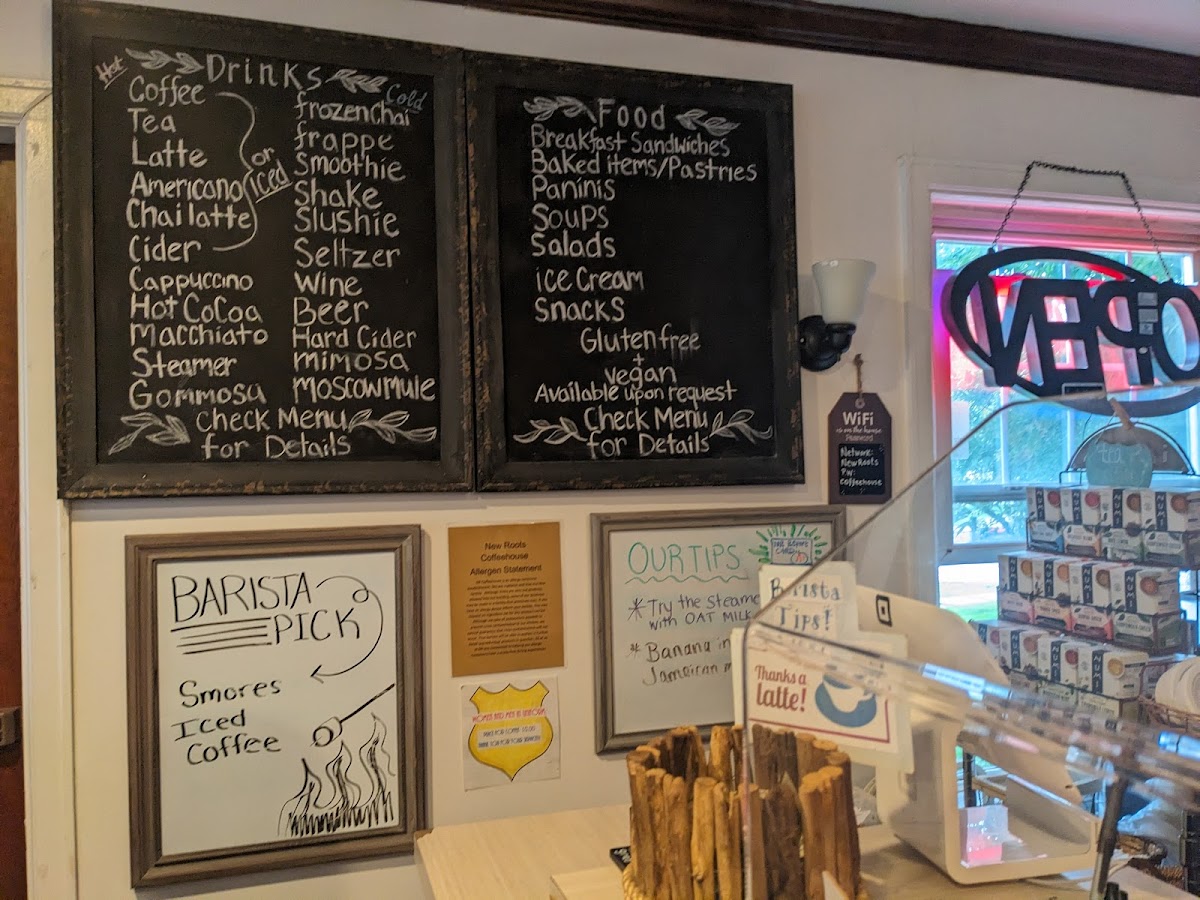 Drinks
Hot
Coffee
Tea
Latte
Americano
Chai latte
or
Iced
Cider
Cappuccino
Hot CoCoa
Macchiato
Steamer
Gommosa
Cold
frozen Chai
frappe
Smoothie
Shake
Slushie
Seltzer
Wine
Beer
Hard Cider
mimosa
Moscow mule
Check Menu
for Details
Food
Breakfast Sandwiches
Baked items/Pastries
Paninis
Soups
Salads
ice Cream
Snacks
Gluten free
+
vegan
Available upon request
Check Menu
for Details
WiFi
is on the house
Password
Network:
New Roots
PW:
coffeehouse
OPEN
BARISTA
PICK
Smores
Iced
Coffee
New Roots
Coffeehouse
Allergen Statement
WOMEN AND MEN IN UNIFORM
OUR TIPS
* Try the Steame
with OAT MILK
* Banana in
Jamaican m
Barista
Tips!
Thanks a
latte!
NUMI
NUMI
NUMI